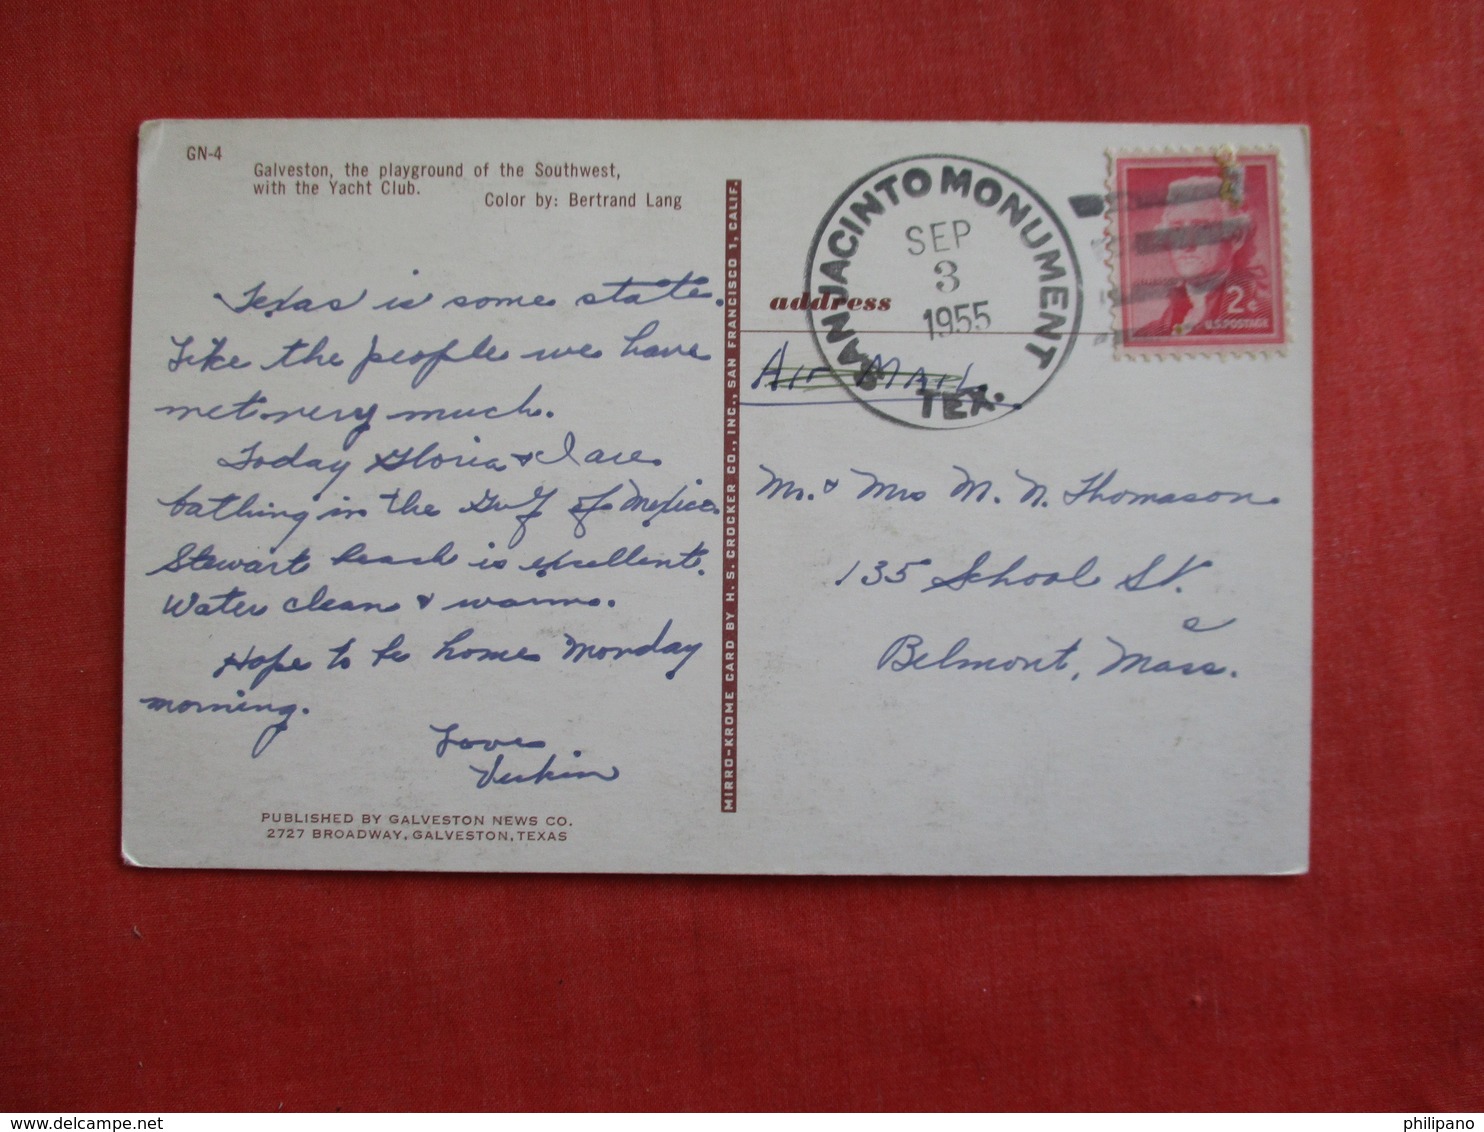 GN-4
Galveston, the playground of the Southwest,
with the Yacht Club.
Color by: Bertrand Lang
Texas is some state.
Like the people we have
met very much.
Today Gloria & I are
bathing in the Gulf of Mexico.
Stewart beach is excellent.
Water clean & warm.
Hope to be home Monday
morning.
Love
PUBLISHED BY GALVESTON NEWS CO.
2727 BROADWAY, GALVESTON, TEXAS
MIRRO-KROME CARD BY H. S. CROCKER CO., INC., SAN FRANCISCO 1, CALIF.
SAN JACINTO MONUMENT
TEX.
SEP
3
1955
2¢
U.S. POSTAGE
address
Air Mail
Mr. & Mrs M. N. Thomason
135 School St.
Belmont, Mass.
philipano